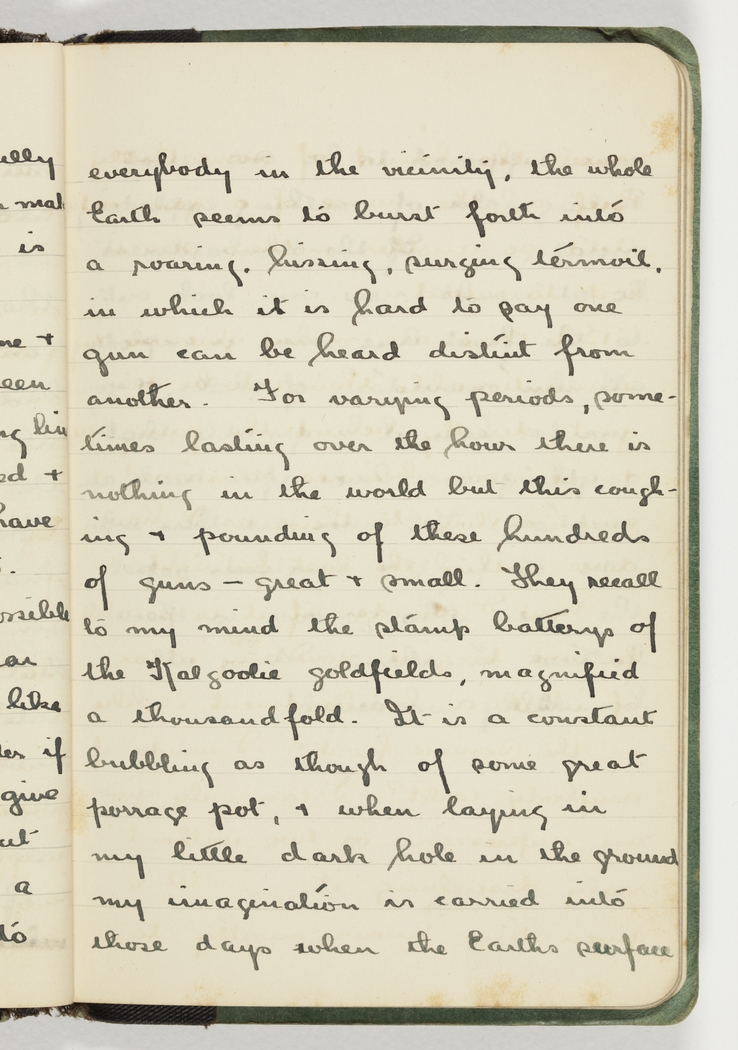 elly
mat
is
me +
een
ng lin
ed +
have
ossible
ar
like
der if
give
ut
a
to
everybody in the vicinity, the whole
Earth seems to burst forth into
a roaring, hissing, surging termoil,
in which it is hard to pay one
gun can be heard distint from
another. For varying periods, some-
times lasting over the hour there is
nothing in the world but this cough-
ing + pounding of these hundreds
of guns - great + small. They recall
to my mind the stamp batterys of
the Kalgoolie goldfields, magnified
a thousandfold. It is a constant
bubbling as though of some great
porrage pot, + when laying in
my little dark hole in the ground
my imagination is carried into
those days when the Earths surface